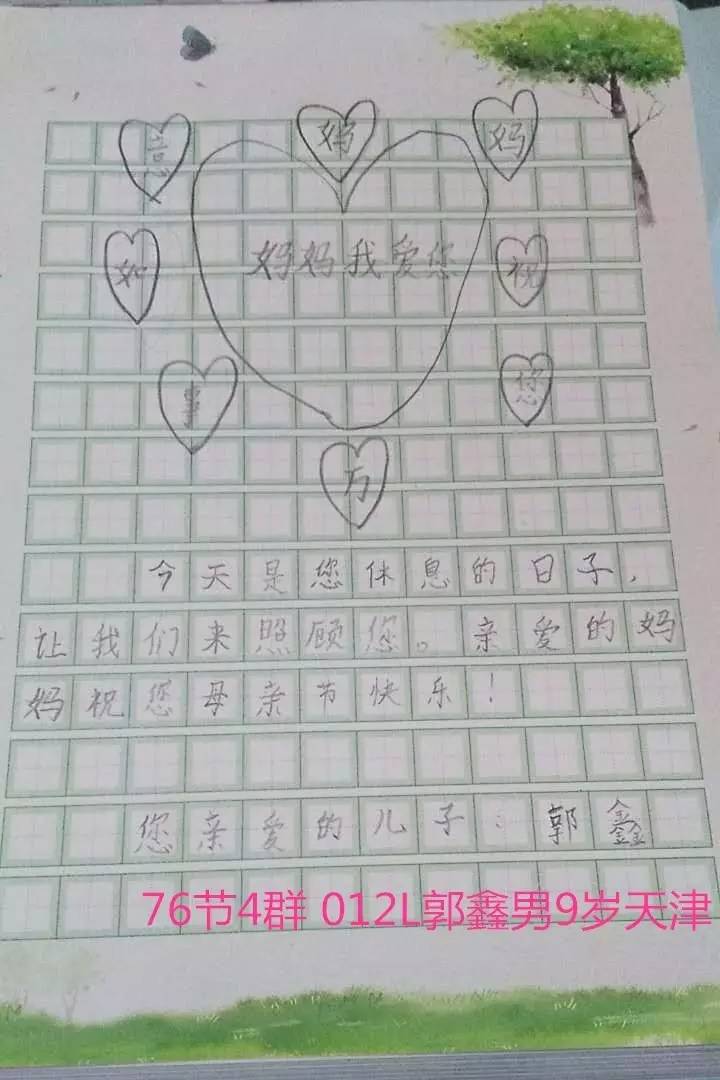 妈妈祝您万事如意
妈妈我爱您
今天是您休息的日子,
让我们来照顾您。亲爱的妈
妈祝您母亲节快乐!
您亲爱的儿子:郭鑫
76节4群 012L郭鑫男9岁天津